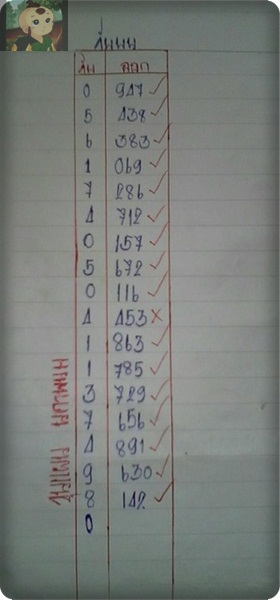 ดับบน
ดับ ออก
0 947 ✓
5 438 ✓
6 383 ✓
1 069 ✓
7 286 ✓
4 712 ✓
0 157 ✓
5 672 ✓
0 116 ✓
4 453 ×
1 863 ✓
1 785 ✓
3 729 ✓
7 656 ✓
4 891 ✓
9 630 ✓
8 142 ✓
0